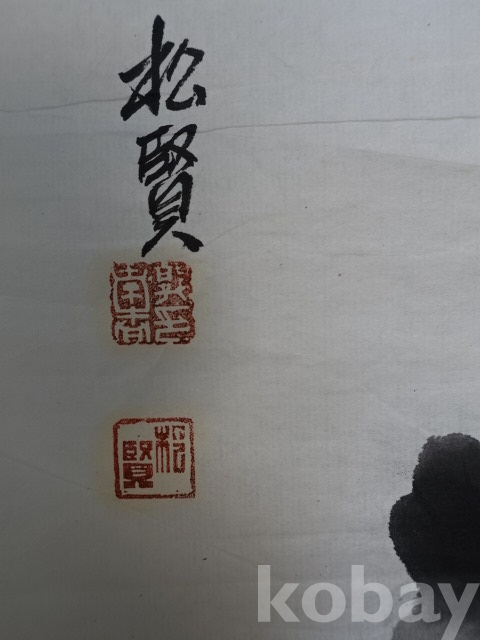 松賢
松賢
kobay